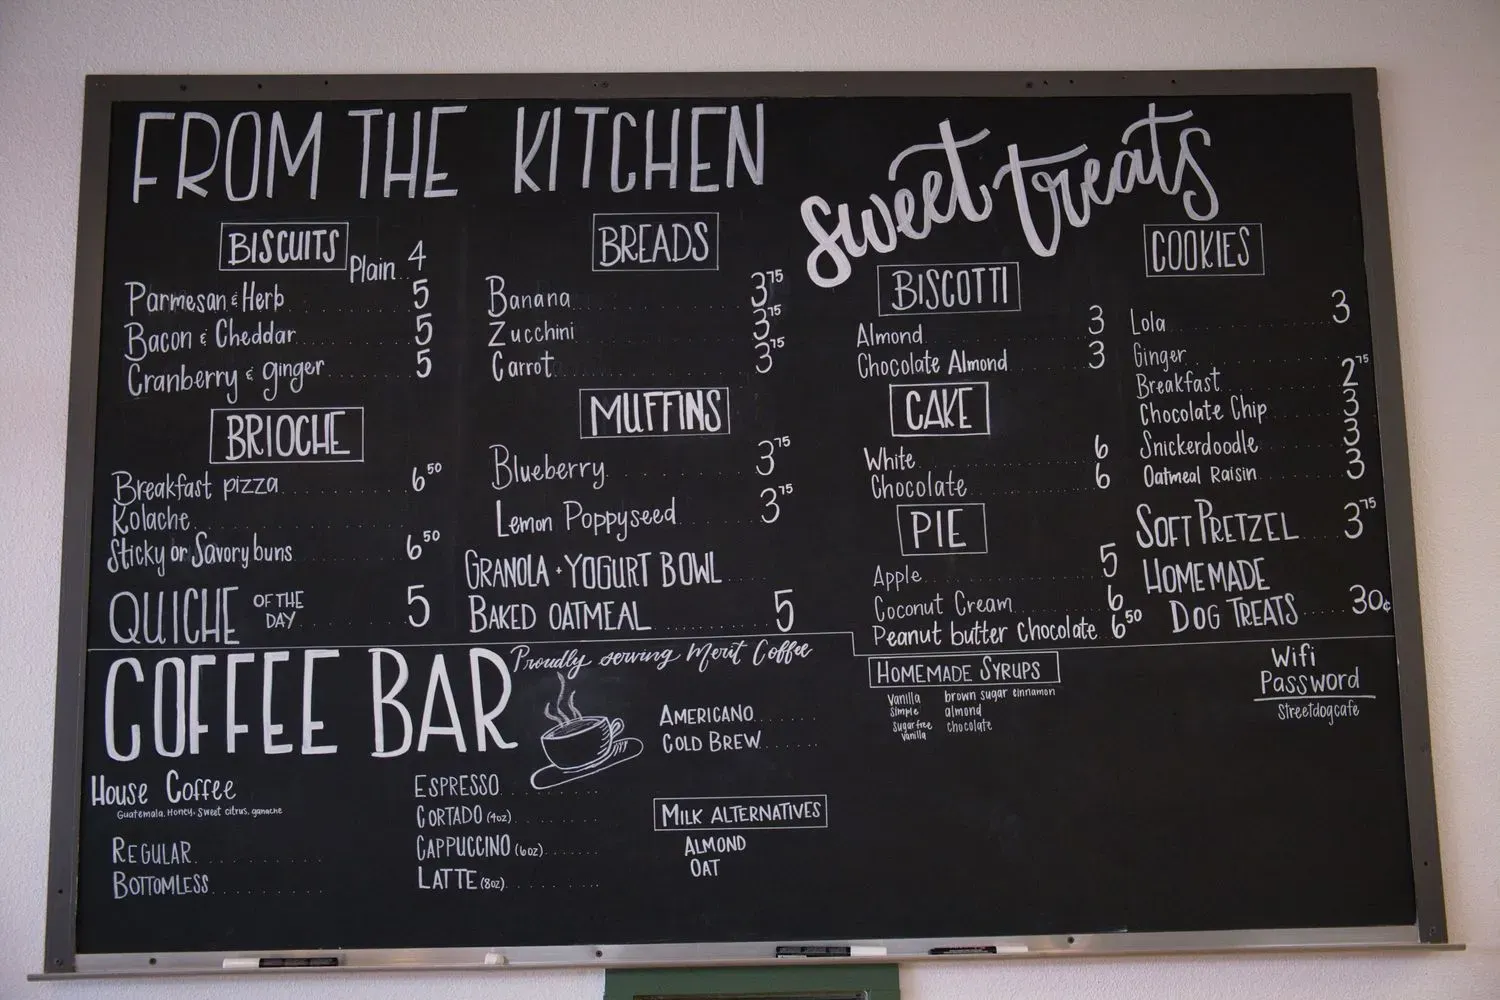 FROM THE KITCHEN
BISCUITS
Plain.. 4
Parmesan & Herb 5
Bacon & Cheddar 5
Cranberry & ginger 5
BRIOCHE
Breakfast pizza 6⁵⁰
Kolache
Sticky or Savory buns 6⁵⁰
QUICHE OF THE DAY 5
BREADS
Banana 3⁷⁵
Zucchini 3⁷⁵
Carrot 3⁷⁵
MUFFINS
Blueberry 3⁷⁵
Lemon Poppyseed 3⁷⁵
GRANOLA + YOGURT BOWL
BAKED OATMEAL 5
sweet treats
BISCOTTI
Almond 3
Chocolate Almond 3
CAKE
White 6
Chocolate 6
PIE
Apple 5
Coconut Cream 6
Peanut butter Chocolate 6⁵⁰
COOKIES
Lola 3
Ginger
Breakfast 2⁷⁵
Chocolate Chip 3
Snickerdoodle 3
Oatmeal Raisin 3
SOFT PRETZEL 3⁷⁵
HOMEMADE
DOG TREATS 30¢
COFFEE BAR
Proudly serving Merit Coffee
House Coffee
Guatemala, Honey, Sweet citrus, ganache
REGULAR
BOTTOMLESS
ESPRESSO
CORTADO (4oz)
CAPPUCCINO (6oz)
LATTE (8oz)
AMERICANO
COLD BREW
MILK ALTERNATIVES
ALMOND
OAT
HOMEMADE SYRUPS
Vanilla
simple
sugar free
vanilla
brown sugar cinnamon
almond
chocolate
Wifi
Password
Streetdogcafe